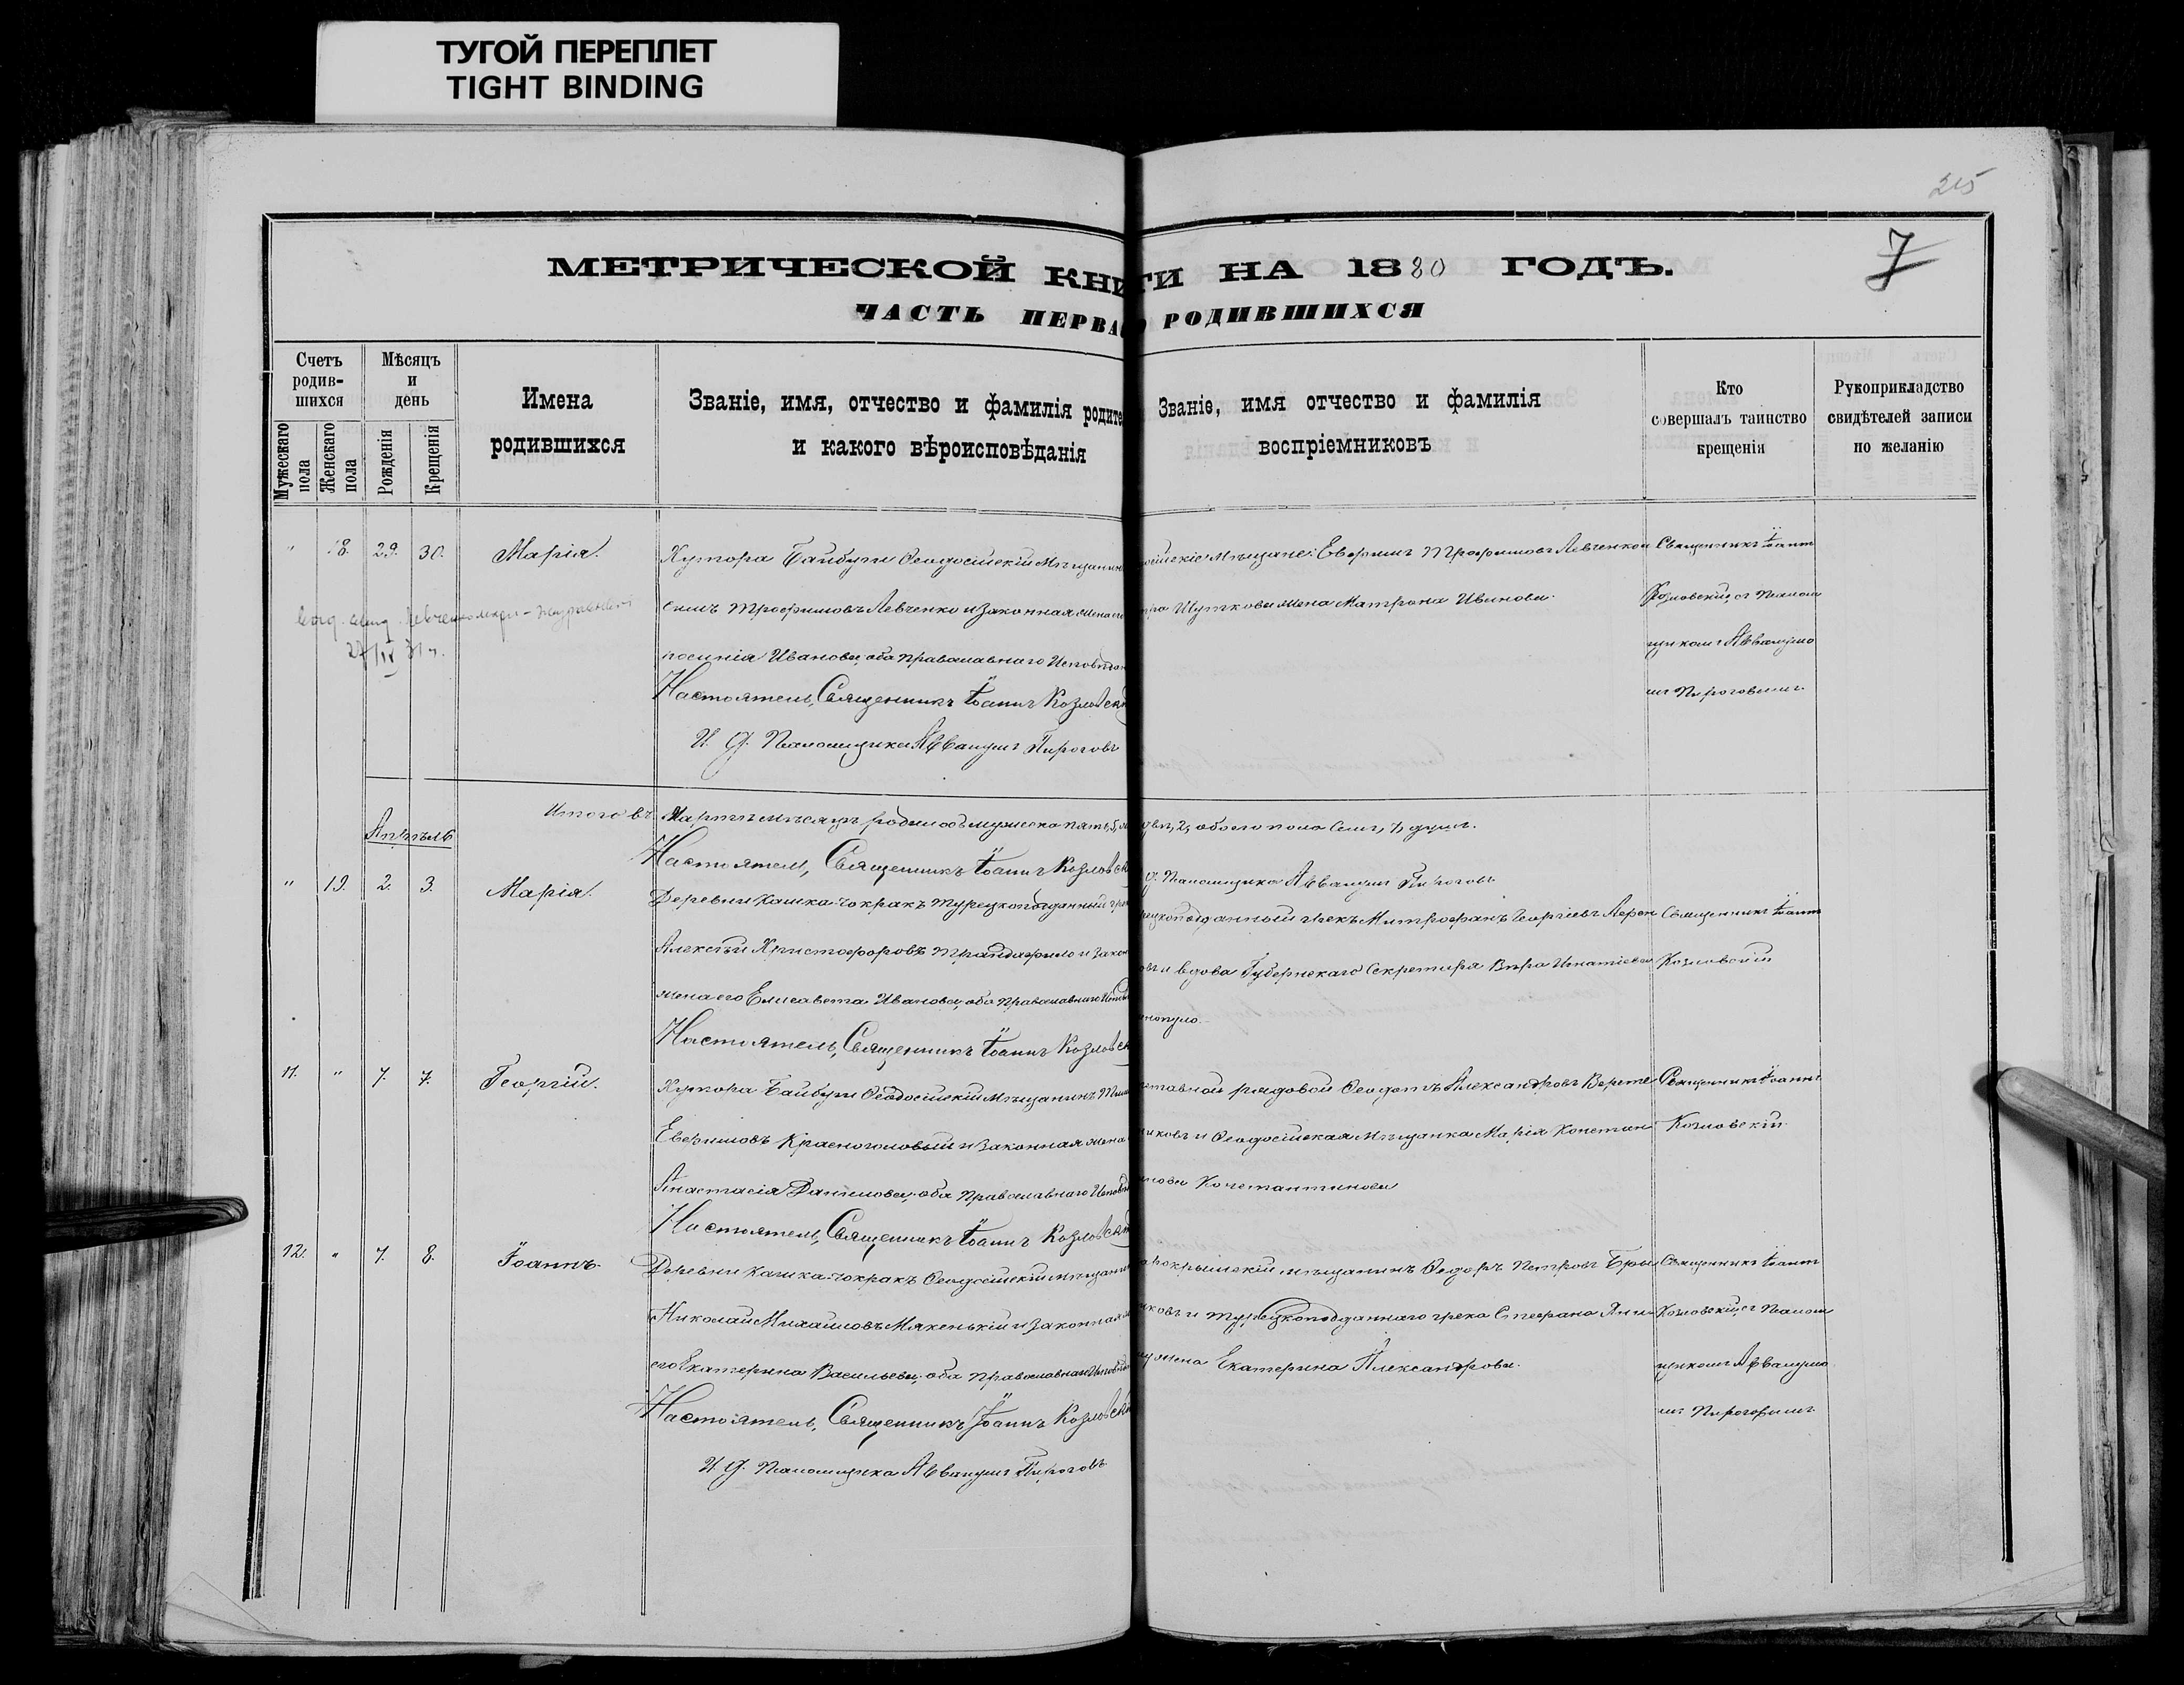 ТУГОЙ ПЕРЕПЛЕТ
TIGHT BINDING
215
7
МЕТРИЧЕСКОЙ КНИГИ НА 1880 ГОДЪ.
ЧАСТЬ ПЕРВАЯ О РОДИВШИХСЯ
Счетъ родив-шихся
Мужескаго пола
Женскаго пола
Мѣсяцъ и день
Рожденія
Крещенія
Имена родившихся
Званіе, имя, отчество и фамилія родите
и какого вѣроисповѣданія
Званіе, имя отчество и фамилія
воспріемниковъ
Кто
совершалъ таинство
крещенія
Рукоприкладство
свидѣтелей записи
по желанію
" 18. 29. 30. Марія.
Хутора Байбуги Ѳеодосійскій Мѣщанинъ
симъ Трофимовъ Левченко и законная жена его
Иванова, оба православнаго Исповѣдан
Настоятель, Священникъ Іоаннъ Козловскі
И. д. Псаломщика Пироговъ
осійскіе Мѣщане: Трофимовъ Левченко и
жена Матрона Иванова.
Священникъ Іоанн
Козловскій, съ Псалом
щикомъ
мъ Пироговымъ.
27/IV 31 г.
Итого въ Мартѣ мѣсяцѣ родилось мужеска пять, 5, ж
2, обоего пола Семь, 7, душъ.
Настоятель, Священникъ Іоаннъ Козловск
д. Псаломщика Пироговъ
Апрѣль
" 19. 2. 3. Марія.
Деревни Кашка-чокракъ турецкоподданный гре
Алексѣй Христофоровъ Трандафило и закон
жена его Елисавета Иванова, оба православнаго Испов
Настоятель, Священникъ Іоаннъ Козловск
рецкоподданный грекъ Митрофанъ Георгіевъ
овъ и вдова Губернскаго Секретаря Вѣра Игнатіева
нопуло.
Священникъ Іоанн
Козловскій
11. " 7. 7. Георгій.
Хутора Байбуги Ѳеодосійскій Мѣщанинъ
Красноголовый и законная жена
Анастасія Данилова, оба православнаго Исповѣд
Настоятель, Священникъ Іоаннъ Козловскі
ставной рядовой Ѳеодотъ Александровъ Верете
никовъ и Ѳеодосійская Мѣщанка Марія Констан
тинова Константинова
Священникъ Іоаннъ
Козловскій.
12. " 7. 8. Іоаннъ.
Деревни Кашка-чокракъ Ѳеодосійскій мѣщанин
Николай Михайловъ Мякенькій и законная
его Екатерина Васильева, оба православнаго Исповѣд
Настоятель, Священникъ Іоаннъ Козловскі
И. д. Псаломщика Пироговъ
арокрымскій мѣщанинъ Ѳедоръ Петровъ
ковъ и турецкоподданнаго грека Стефана
жена Екатерина Александрова.
Священникъ Іоанн
Козловскій, съ Псалом
щикомъ
мъ Пироговымъ.